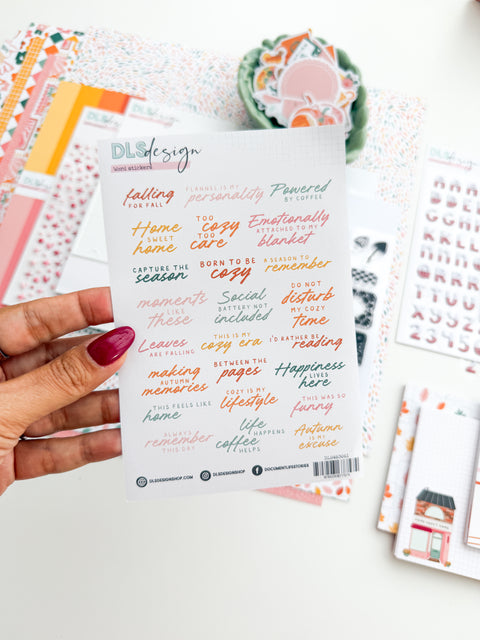 DLSdesign
Word stickers
falling
FOR FALL
FLANNEL IS MY
personality
Powered
BY COFFEE
Home
SWEET
home
TOO
cozy
TOO
care
Emotionally
ATTACHED TO MY
blanket
CAPTURE THE
season
BORN TO BE
cozy
A SEASON TO
remember
moments
LIKE
these
Social
BATTERY NOT
included
DO NOT
disturb
MY COZY
time
Leaves
ARE FALLING
THIS IS MY
cozy era
I'D RATHER BE
reading
making
AUTUMN
memories
BETWEEN THE
pages
Happiness
LIVES
here
THIS FEELS LIKE
home
COZY IS MY
lifestyle
THIS WAS SO
funny
ALWAYS
remember
THIS DAY
life
HAPPENS
coffee
HELPS
Autumn
IS MY
excuse
DLSDESIGNSHOP.COM
DLSDESIGNSHOP
DOCUMENTLIFESTICKERS